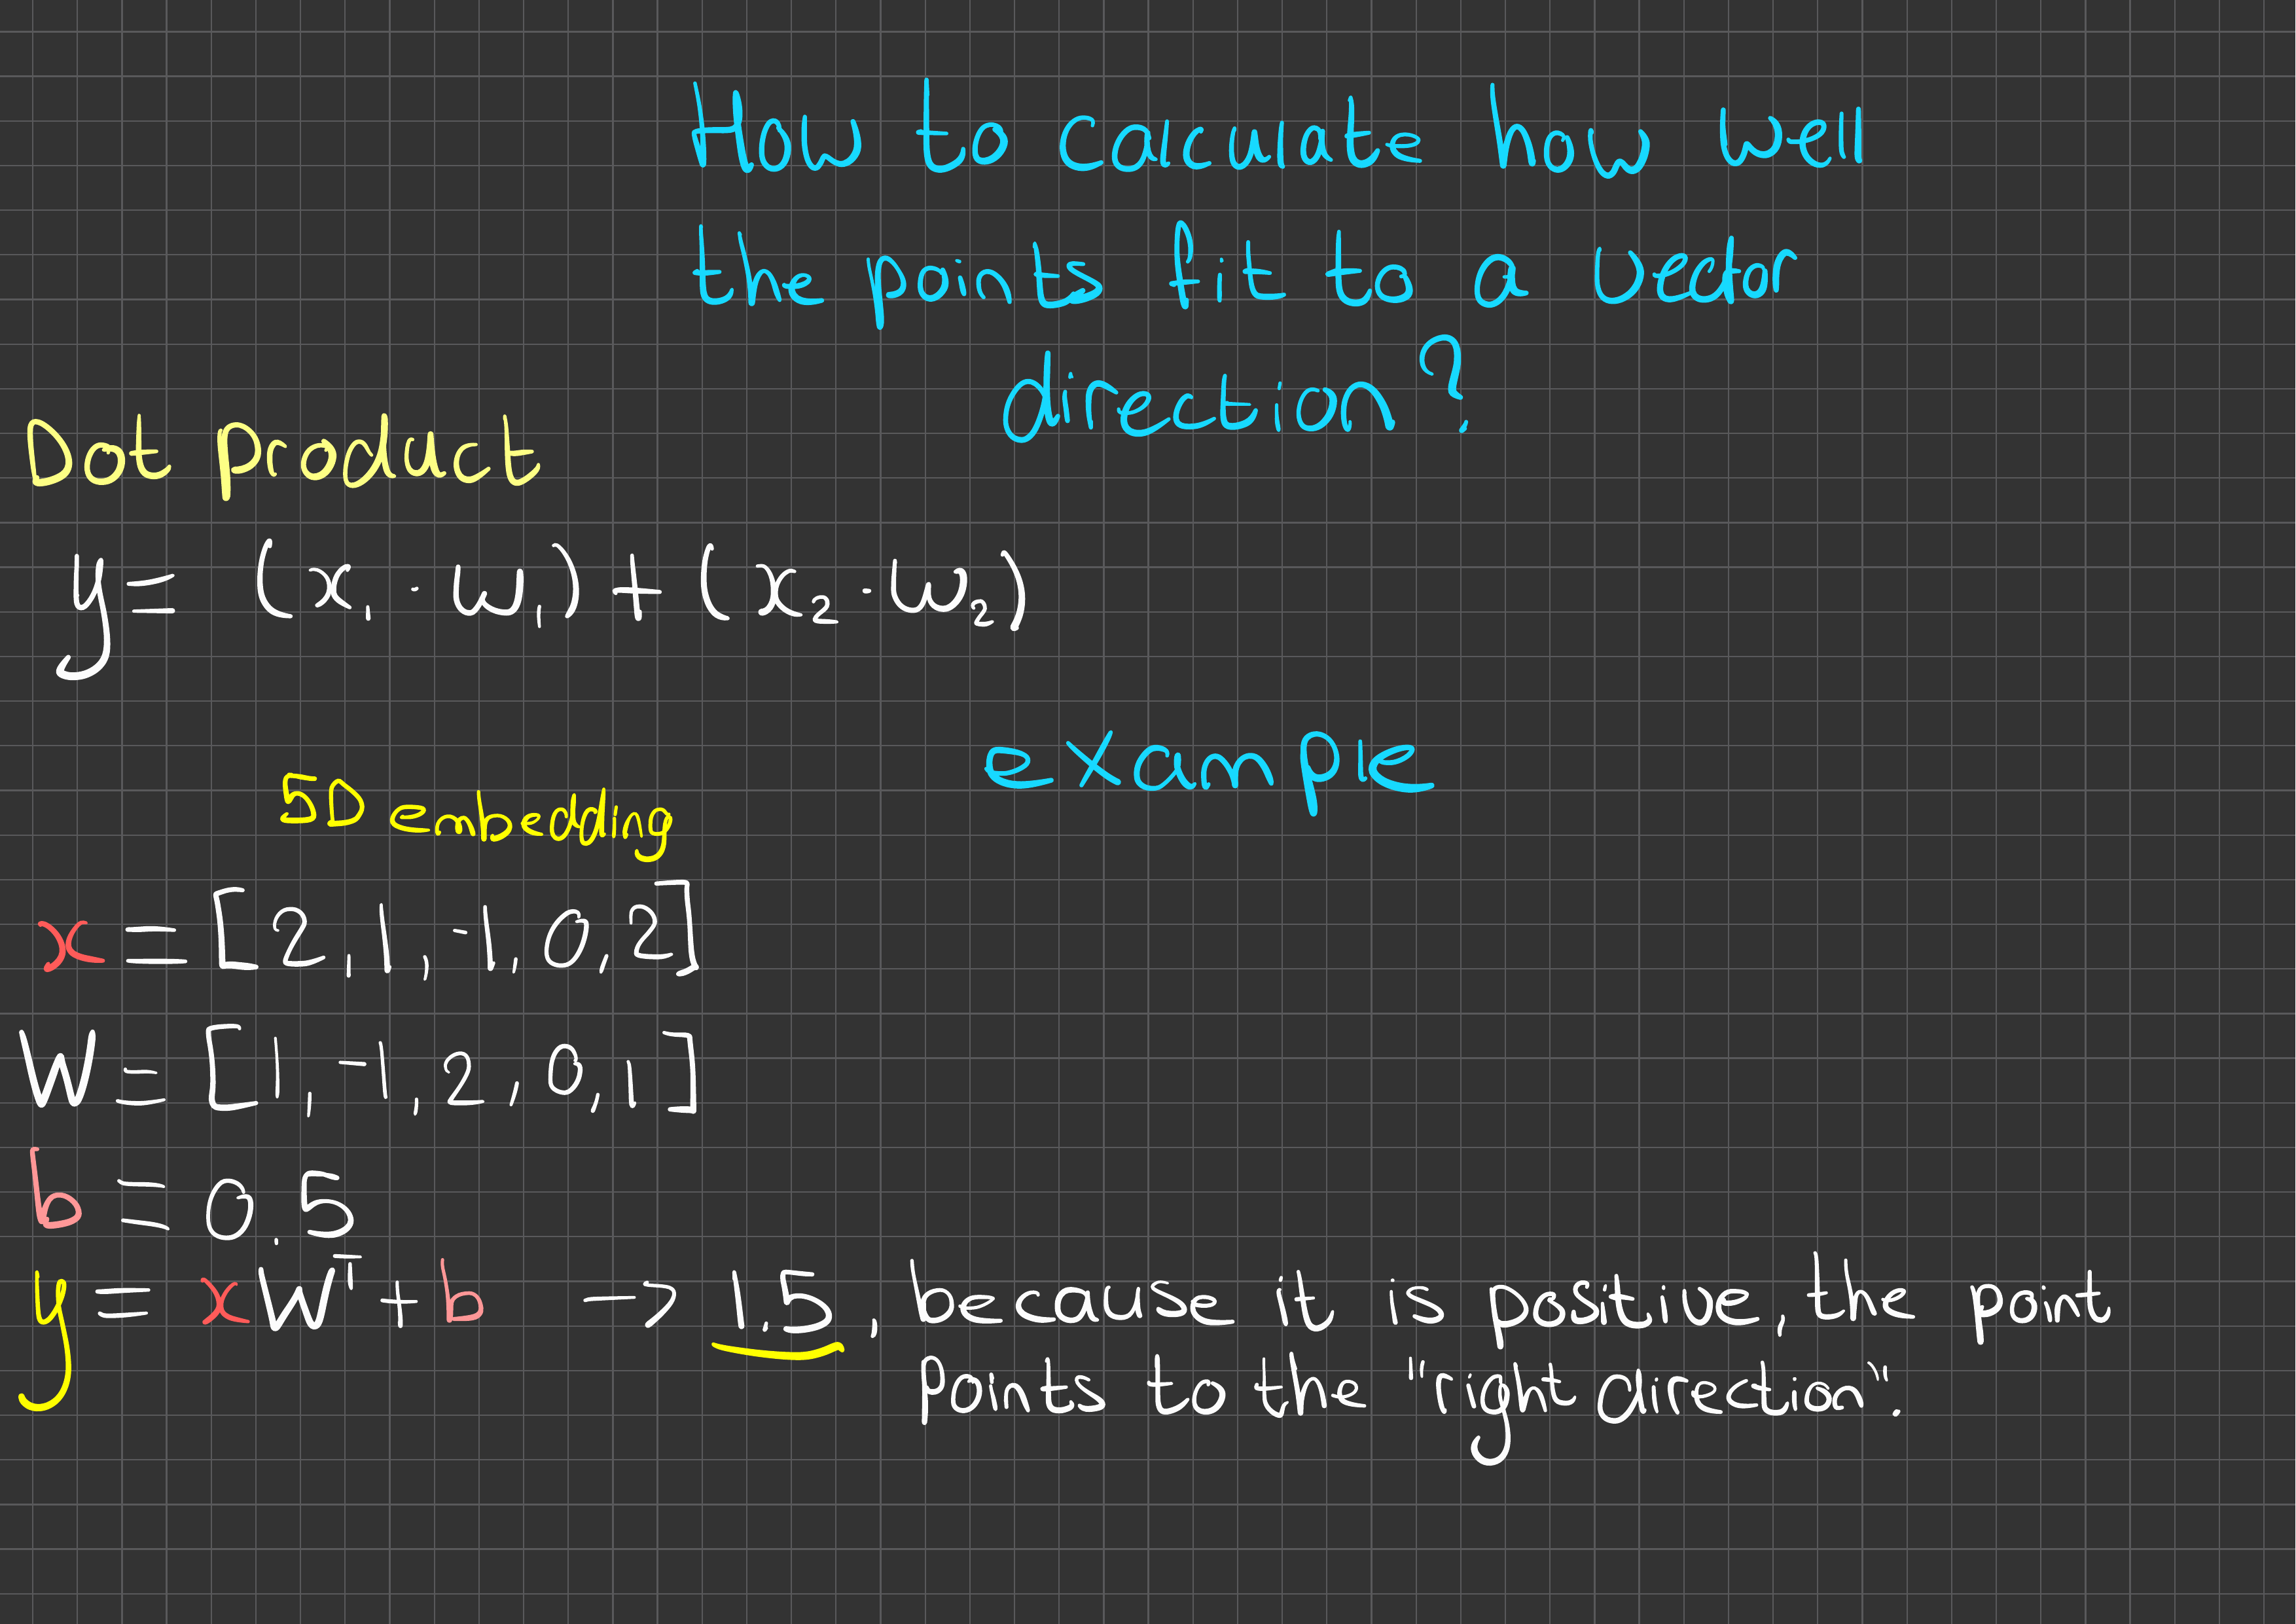 How to calculate how well
the points fit to a vector
direction?
Dot product
y = (x₁ · w₁) + (x₂ · w₂)
example
5D embedding
x = [2, 1, -1, 0, 2]
W = [1, -1, 2, 0, 1]
b = 0.5
y = xWᵀ + b -> 1.5, because it is positive, the point
points to the "right direction".